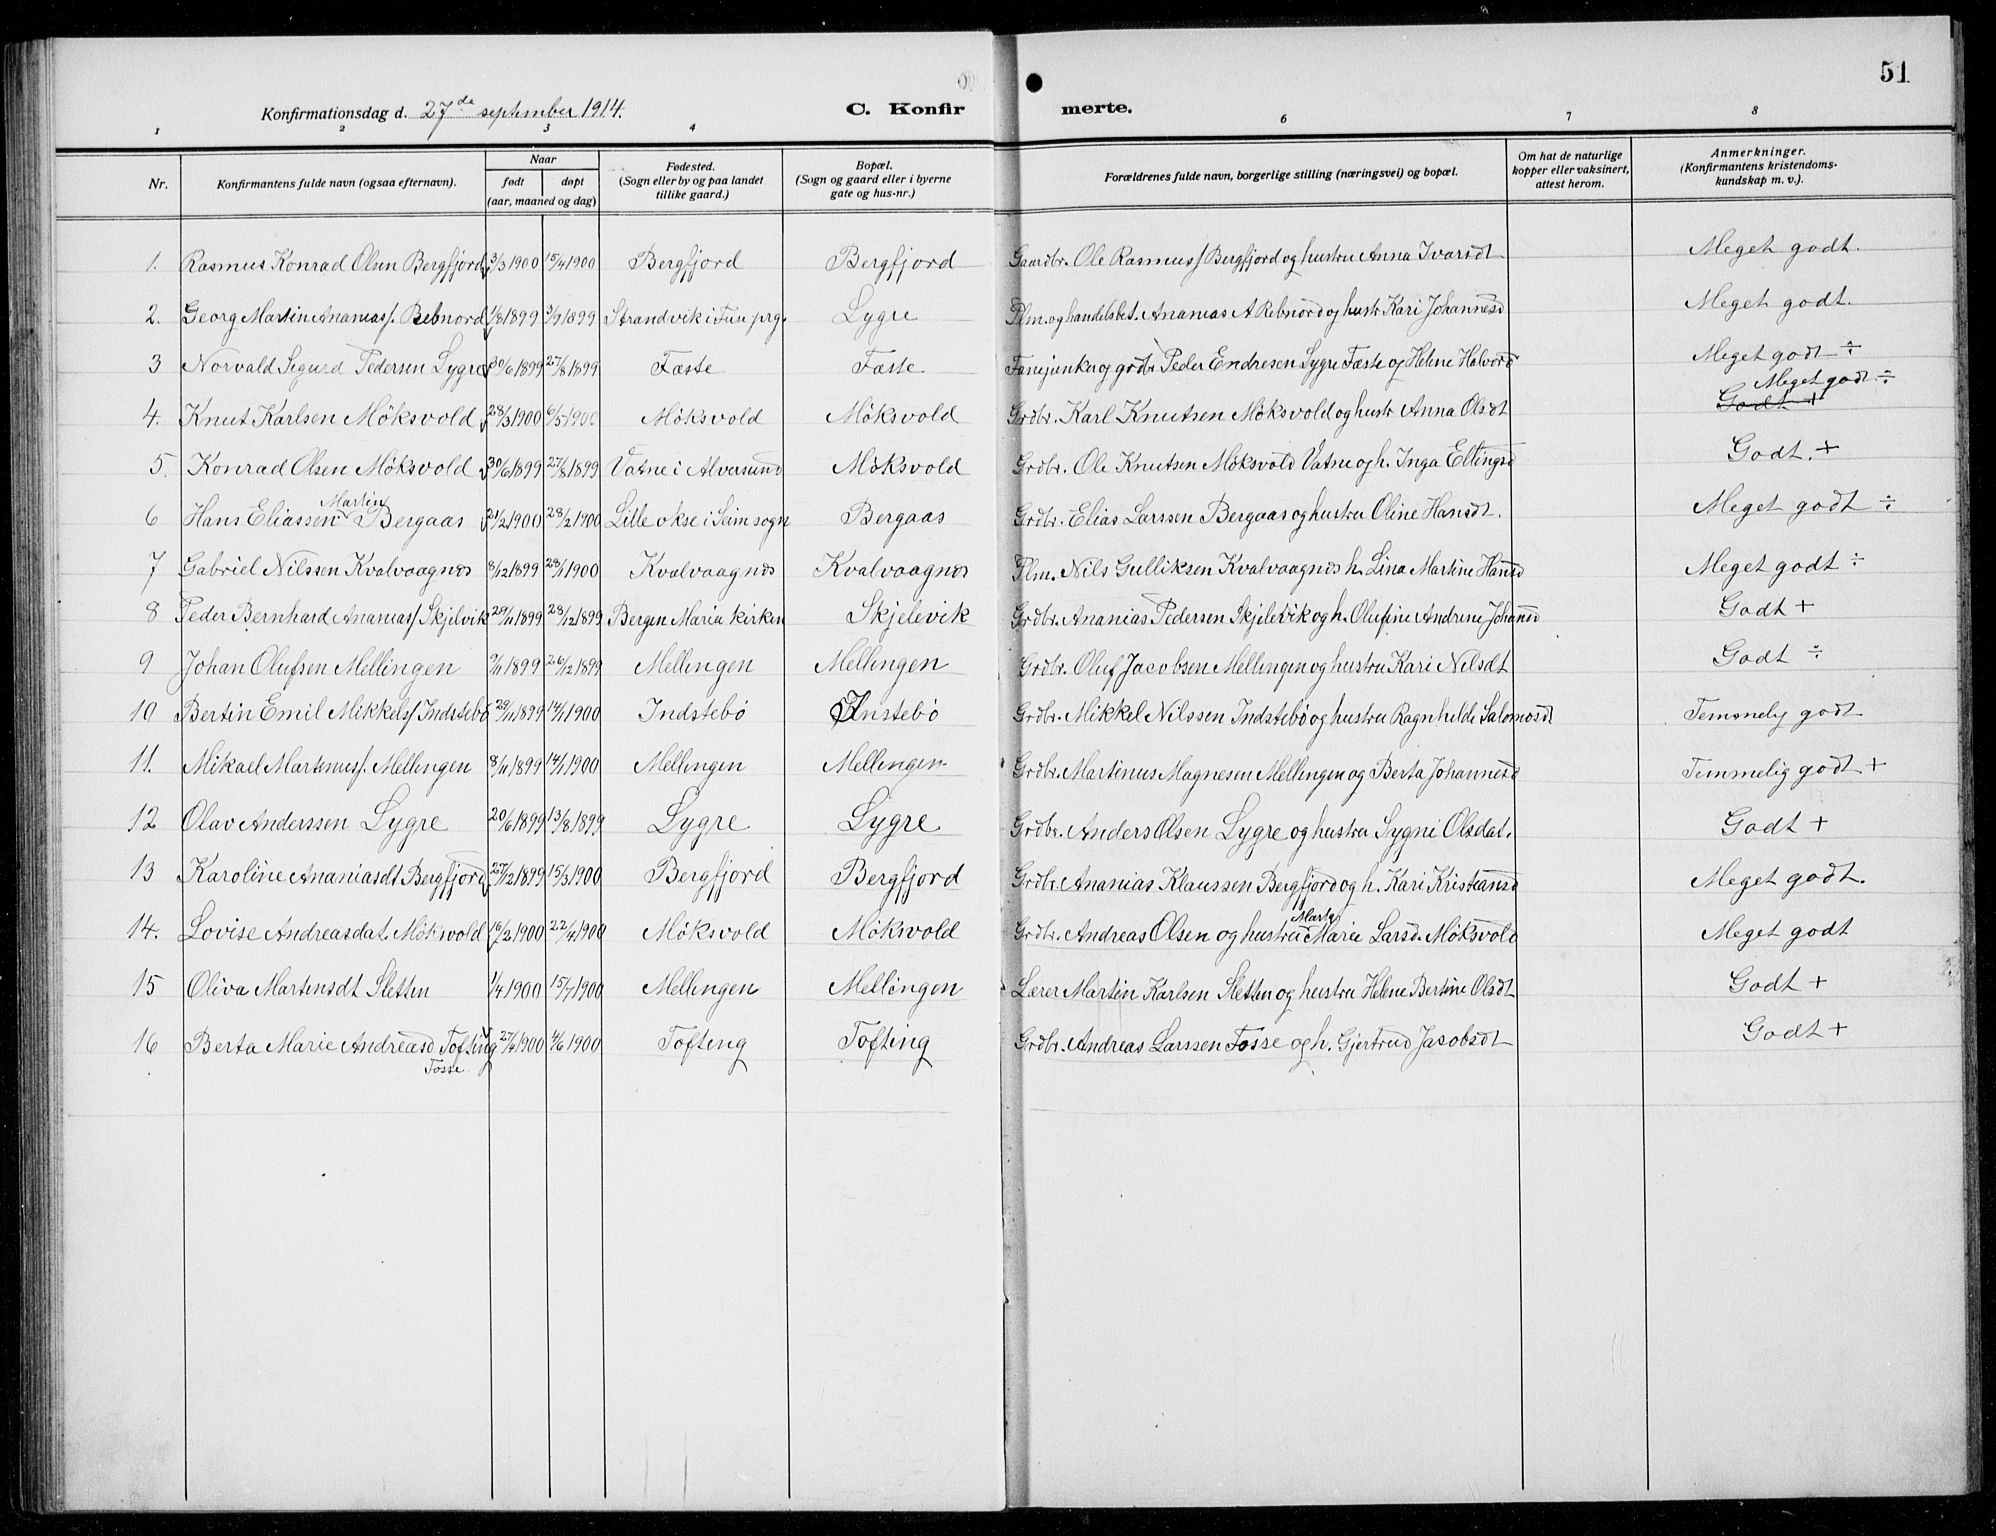 51
Konfirmationsdag d. 27de september 1914. C. Konfirmerte.
1 2 3 4 6 7 8
Nr. Konfirmantens fulde navn (ogsaa efternavn). Naar født døpt (aar, maaned og dag) Fødested. (Sogn eller by og paa landet tillike gaard.) Bopæl. (Sogn og gaard eller i byerne gate og hus-nr.) Forældrenes fulde navn, borgerlige stilling (næringsvei) og bopæl. Om hat de naturlige kopper eller vaksinert, attest herom. Anmerkninger. (Konfirmantens kristendoms-kundskap m. v.).
1. Rasmus Konrad Olsen Bergfjord 3/3 1900 15/4 1900 Bergfjord Bergfjord Gaardbr. Ole Rasmuss/ Bergfjord og hustru Anna Ivarsdt Meget godt.
2. Georg Martin Ananiass/. Rebnord 1/8 1899 3/9 1899 Strandvik i Fun prg. Lygre Plm. og handelsbet. Ananias A Rebnord og hustr Kari Johannesd Meget godt.
3 Norvald Sigurd Pedersen Lygre 30/6 1899 27/8 1899 Fæste Fæste Fanejunker og grdbr. Peder Endresen Lygre Fæste og Helene Halvord Meget godt ÷
4. Knut Karlsen Møksvold 28/3 1900 6/5 1900 Møksvold Møksvold Grdbr. Karl Knutsen Møksvold og hustr Anna Olsdt Godt + Meget godt ÷
5. Konrad Olsen Møksvold 30/6 1899 27/8 1899 Vatne i Alversund Møksvold Grdbr. Ole Knutsen Møksvold Vatne og h. Inga Ellingsd Godt. +
6 Hans Eliassen Martin Bergaas 21/2 1900 28/2 1900 Lille okse i Seim sogn Bergaas Grdbr. Elias Larssen Bergaas og hustru Oline Hansdt. Meget godt ÷
7 Gabriel Nilssen Kvalvaagnes 8/12 1899 28/1 1900 Kvalvaagnes Kvalvaagnes Plm. Nils Gulliksen Kvalvaagnes h. Lina Martine Hansd Meget godt ÷
8 Peder Bernhard Ananiass/ Skjelvik 20/11 1899 28/12 1899 Bergen Maria kirken Skjelevik Grdbr. Ananias Pedersen Skjelevik og h. Olufine Andrine Johansd Godt +
9 Johan Olufsen Mellingen 9/11 1899 26/12 1899 Mellingen Mellingen Grdbr. Oluf Jacobsen Mellingen og hustru Kari Nilsdt Godt ÷
10 Bertin Emil Mikkels/ Indstebø 29/11 1899 14/1 1900 Indstebø Instebø Grdbr. Mikkel Nilssen Indstebø og hustru Ragnhilde Salomosdt Temmelig godt
11. Mikael Martinuss/. Mellingen 8/11 1899 14/1 1900 Mellingen Mellingen Grdbr. Martinus Magnesen Mellingen og Berta Johannesd Temmelig godt +
12 Olav Anderssen Lygre 20/6 1899 13/8 1899 Lygre Lygre Grdbr. Anders Olsen Lygre og hustru Sygni Olsdat. Godt +
13 Karoline Ananiasdt Bergfjord 27/12 1899 15/3 1900 Bergfjord Bergfjord Grdbr. Ananias Klaussen Bergfjord og h. Kari Kristiansd Meget godt.
14. Lovise Andreasdat. Møksvold 16/2 1900 22/4 1900 Møksvold Møksvold Grdbr. Andreas Olsen og hustru Marta Marie Larsd. Møksvold Meget godt
15 Oliva Martinsdt Sletten 1/4 1900 15/7 1900 Mellingen Mellingen Lærer Martin Karlsen Sletten og hustru Helene Bertine Olsdt Godt +
16 Berta Marie Andreasd Tofting Fosse 27/4 1900 4/6 1900 Tofting Tofting Grdbr. Andreas Larssen Fosse og h. Gjertrud Jacobsdt Godt +